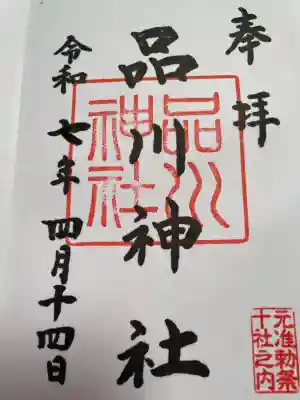 奉拝
品川神社
品川神社
令和七年四月十四日
元准勅祭
十社之内